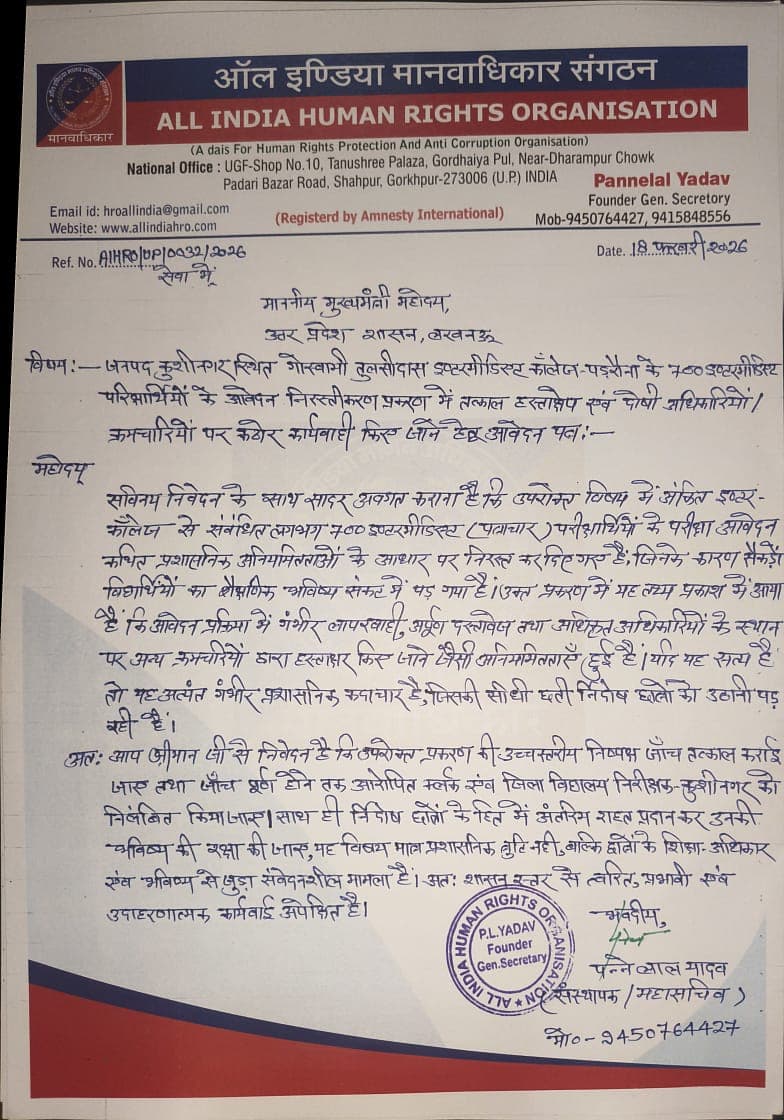 ऑल इण्डिया मानवाधिकार संगठन
ALL INDIA HUMAN RIGHTS ORGANISATION
मानवाधिकार
(A dais For Human Rights Protection And Anti Corruption Organisation)
National Office : UGF-Shop No.10, Tanushree Palaza, Gordhaiya Pul, Near-Dharampur Chowk
Padari Bazar Road, Shahpur, Gorkhpur-273006 (U.P.) INDIA
Pannelal Yadav
Founder Gen. Secretary
Mob-9450764427, 9415848556
Email id: hroallindia@gmail.com
Website: www.allindiahro.com
(Registerd by Amnesty International)
Ref. No. AIHRO/UP/0032/2026
Date. 18 फरवरी/2026
सेवा में,
माननीय मुख्यमंत्री महोदय,
उत्तर प्रदेश शासन, लखनऊ
विषय:— जनपद कुशीनगर स्थित गोस्वामी तुलसीदास इण्टरमीडिएट कॉलेज-पड़रौना के 700 इण्टरमीडिएट
परिक्षार्थियों के आवेदन निरस्तीकरण प्रकरण में तत्काल हस्तक्षेप एवं दोषी अधिकारियों/
क्रमचारियों पर कठोर कार्यवाही किए जाने हेतु आवेदन पत्र:—
महोदय
सविनय निवेदन के साथ सादर अवगत कराना है कि उपरोक्त विषय में अंकित इण्टर-
कॉलेज से संबंधित लगभग 700 इण्टरमीडिएट (पत्राचार) परीक्षार्थियों के परीक्षा आवेदन
कथित प्रशासनिक अनियमितताओं के आधार पर निरस्त कर दिए गए हैं, जिनके कारण सैकड़ों
विद्यार्थियों का शैक्षणिक भविष्य संकट में पड़ गया है। उक्त प्रकरण में यह तथ्य प्रकाश में आया
है कि आवेदन प्रक्रिया में गंभीर लापरवाही, अपूर्ण दस्तावेज तथा अधिकृत अधिकारियों के स्थान
पर अन्य क्रमचारियों द्वारा हस्ताक्षर किए जाने जैसी अनियमितताएँ हुई है। यदि यह सत्य है
तो यह अत्यंत गंभीर प्रशासनिक कदाचार है, जिसकी सीधी क्षती निर्दोष छात्रों को उठानी पड़
रही है।
अत: आप श्रीमान जी से निवेदन है कि उपरोक्त प्रकरण की उच्चस्तरीय निष्पक्ष जाँच तत्काल कराई
जाए तथा जाँच पूर्ण होने तक आरोपित क्लर्क एंव जिला विद्यालय निरीक्षक-कुशीनगर को
निलंबित किया जाए। साथ ही निर्दोष छात्रों के हित में अंतरिम राहत प्रदान कर उनकी
भविष्य की रक्षा की जाए, यह विषय मात्र प्रशासनिक त्रुटि नही, बल्कि छात्रों के शिक्षा-अधिकार
एंव भविष्य से जुड़ा संवेदनशील मामला है। अत: शासन स्तर से त्वरित, प्रभावी एंव
उदाहरणात्मक कार्यवाई अपेक्षित है।
ALL INDIA HUMAN RIGHTS ORGANISATION
P.L.YADAV
Founder
Gen.Secretary
भवदीय,
पन्ने लाल यादव
(संस्थापक / महासचिव)
मो०-9450764427